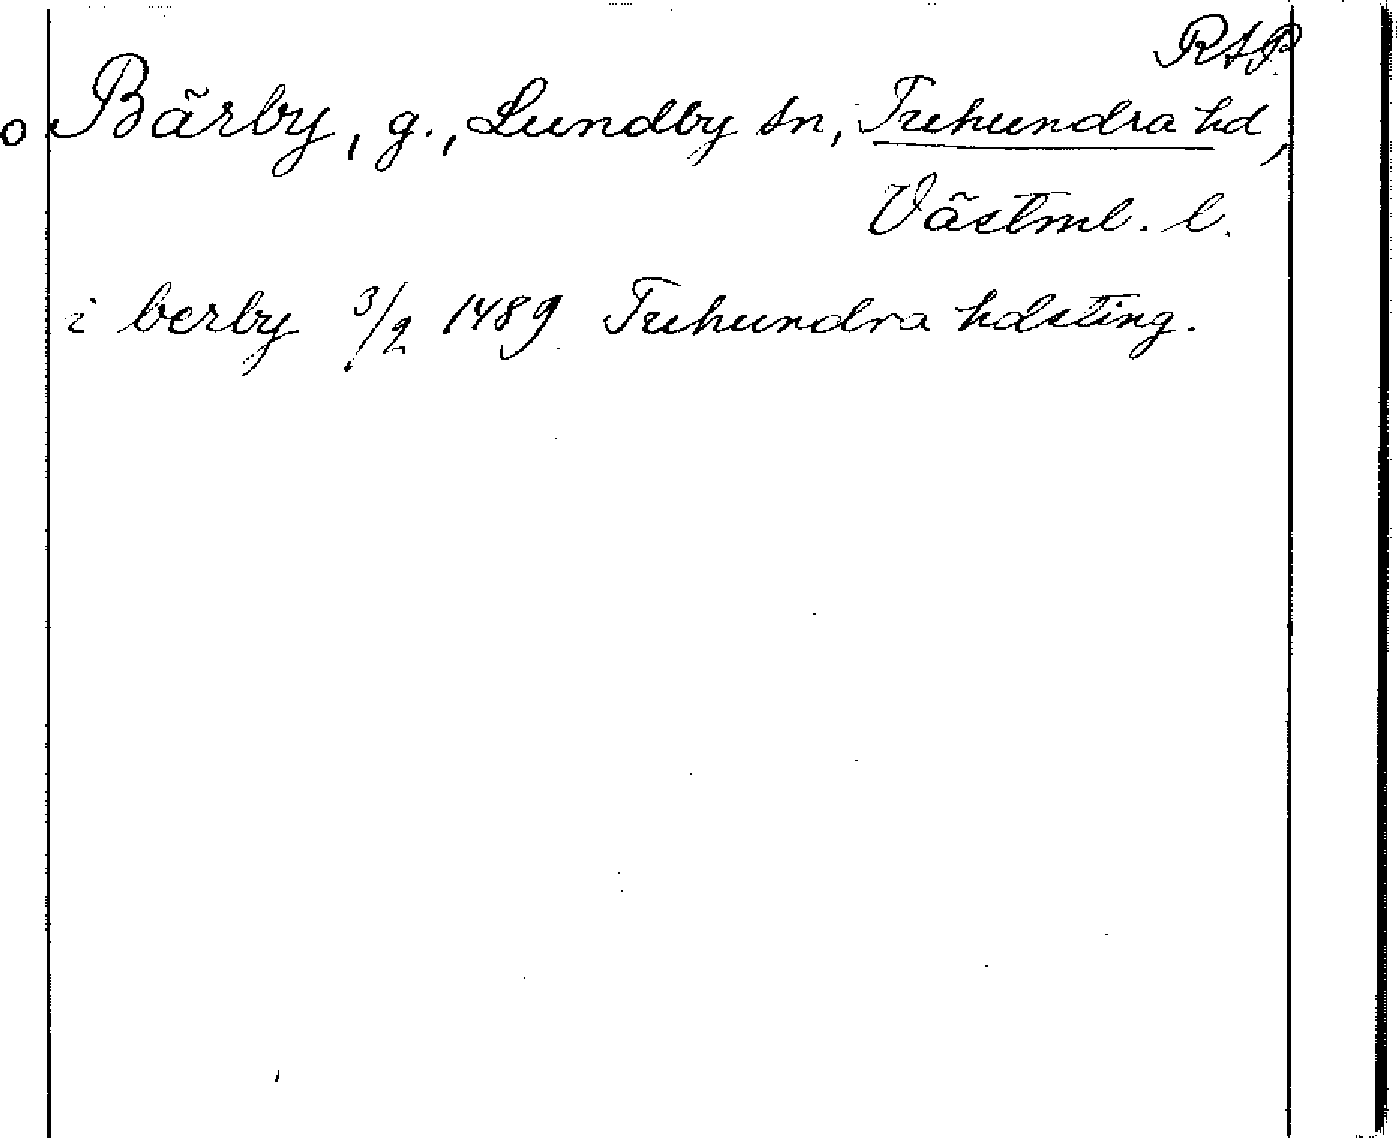 RAP.
o Bärby, g., Lundby sn, Tuhundra hd,
Västml. l.
i berby 3/2 1489 Tuhundra hdsting.